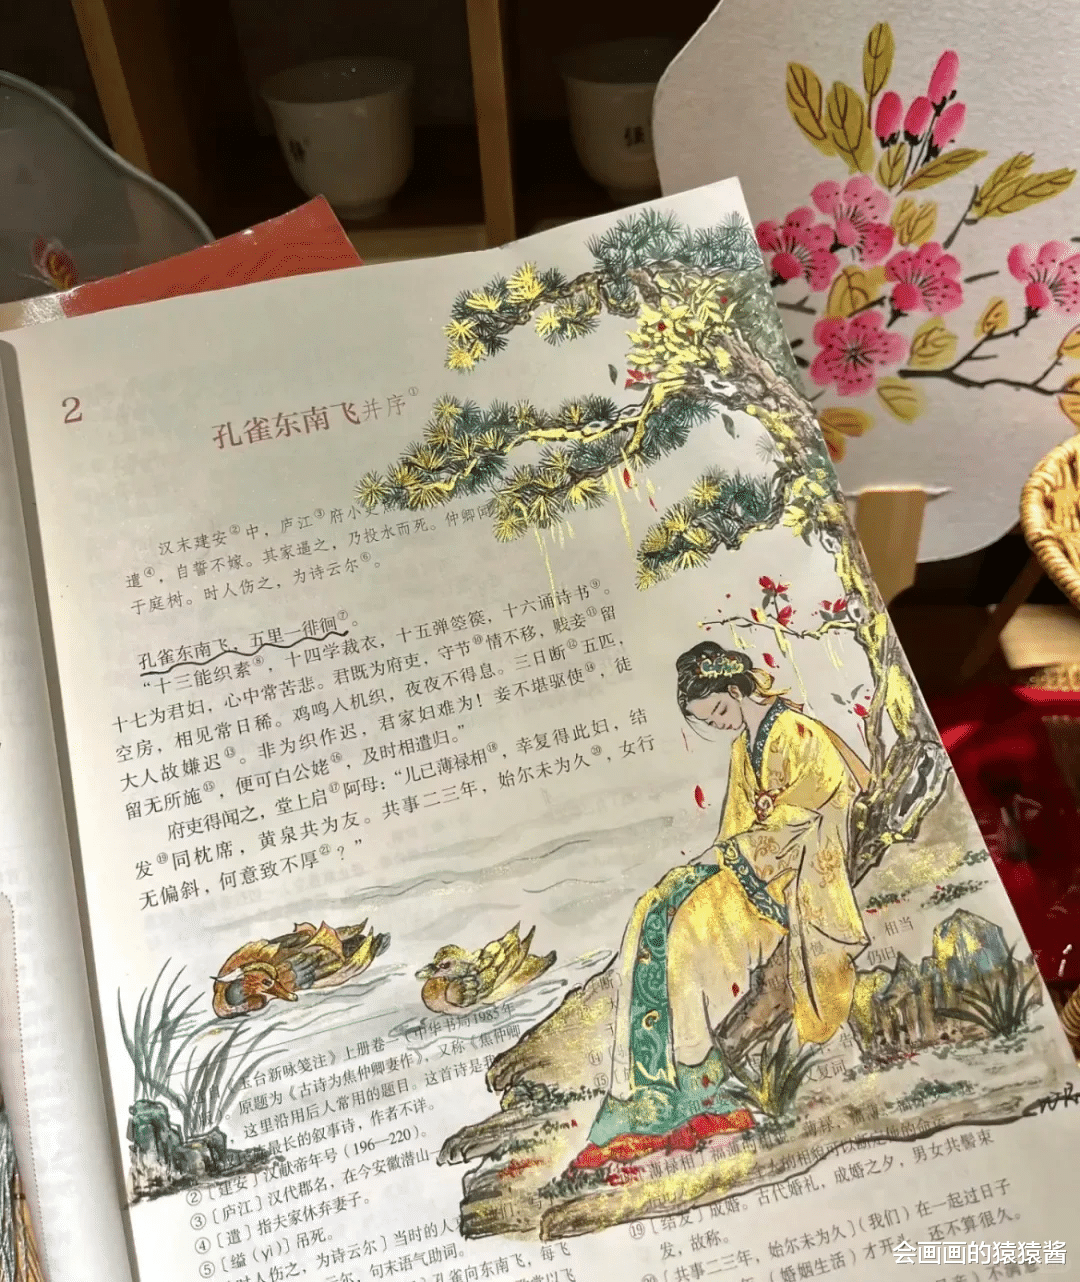 2
孔雀东南飞并序①
汉末建安②中，庐江③府小吏
遣④，自誓不嫁。其家逼之，乃投水而死。仲卿闻
于庭树。时人伤之，为诗云尔⑥。
孔雀东南飞，五里一徘徊⑦。
“十三能织素⑧，十四学裁衣，十五弹箜篌，十六诵诗书⑨。
十七为君妇，心中常苦悲。君既为府吏，守节⑩情不移，贱妾⑪留
空房，相见常日稀。鸡鸣入机织，夜夜不得息。三日断⑫五匹，
大人故嫌迟⑬。非为织作迟，君家妇难为！妾不堪驱使⑭，徒
留无所施⑮，便可白公姥⑯，及时相遣归。”
府吏得闻之，堂上启⑰阿母：“儿已薄禄相⑱，幸复得此妇，结
发⑲同枕席，黄泉共为友。共事二三年，始尔未为久⑳，女行
无偏斜，何意致不厚㉑？”
玉台新咏笺注》上册卷一（中华书局1985年
原题为《古诗为焦仲卿妻作》，又称《焦仲卿
，这里沿用后人常用的题目。这首诗是我
最长的叙事诗，作者不详。
②〔建安〕汉献帝年号（196—220）。
③〔庐江〕汉代郡名，在今安徽潜山一
④〔遣〕指夫家休弃妻子。
⑤〔缢（yì）〕吊死。
时人伤之，为诗云尔〕当时的人
云尔，句末语气助词。
孔雀向东南飞，每飞
相当
仍旧
告
复词
⑲〔结发〕成婚。古代婚礼，成婚之夕，男女共髻束
发，故称。
⑳〔共事二三年，始尔未为久〕（我们）在一起过日子
（婚姻生活）才开
还不算很久。
会画画的猿猿酱